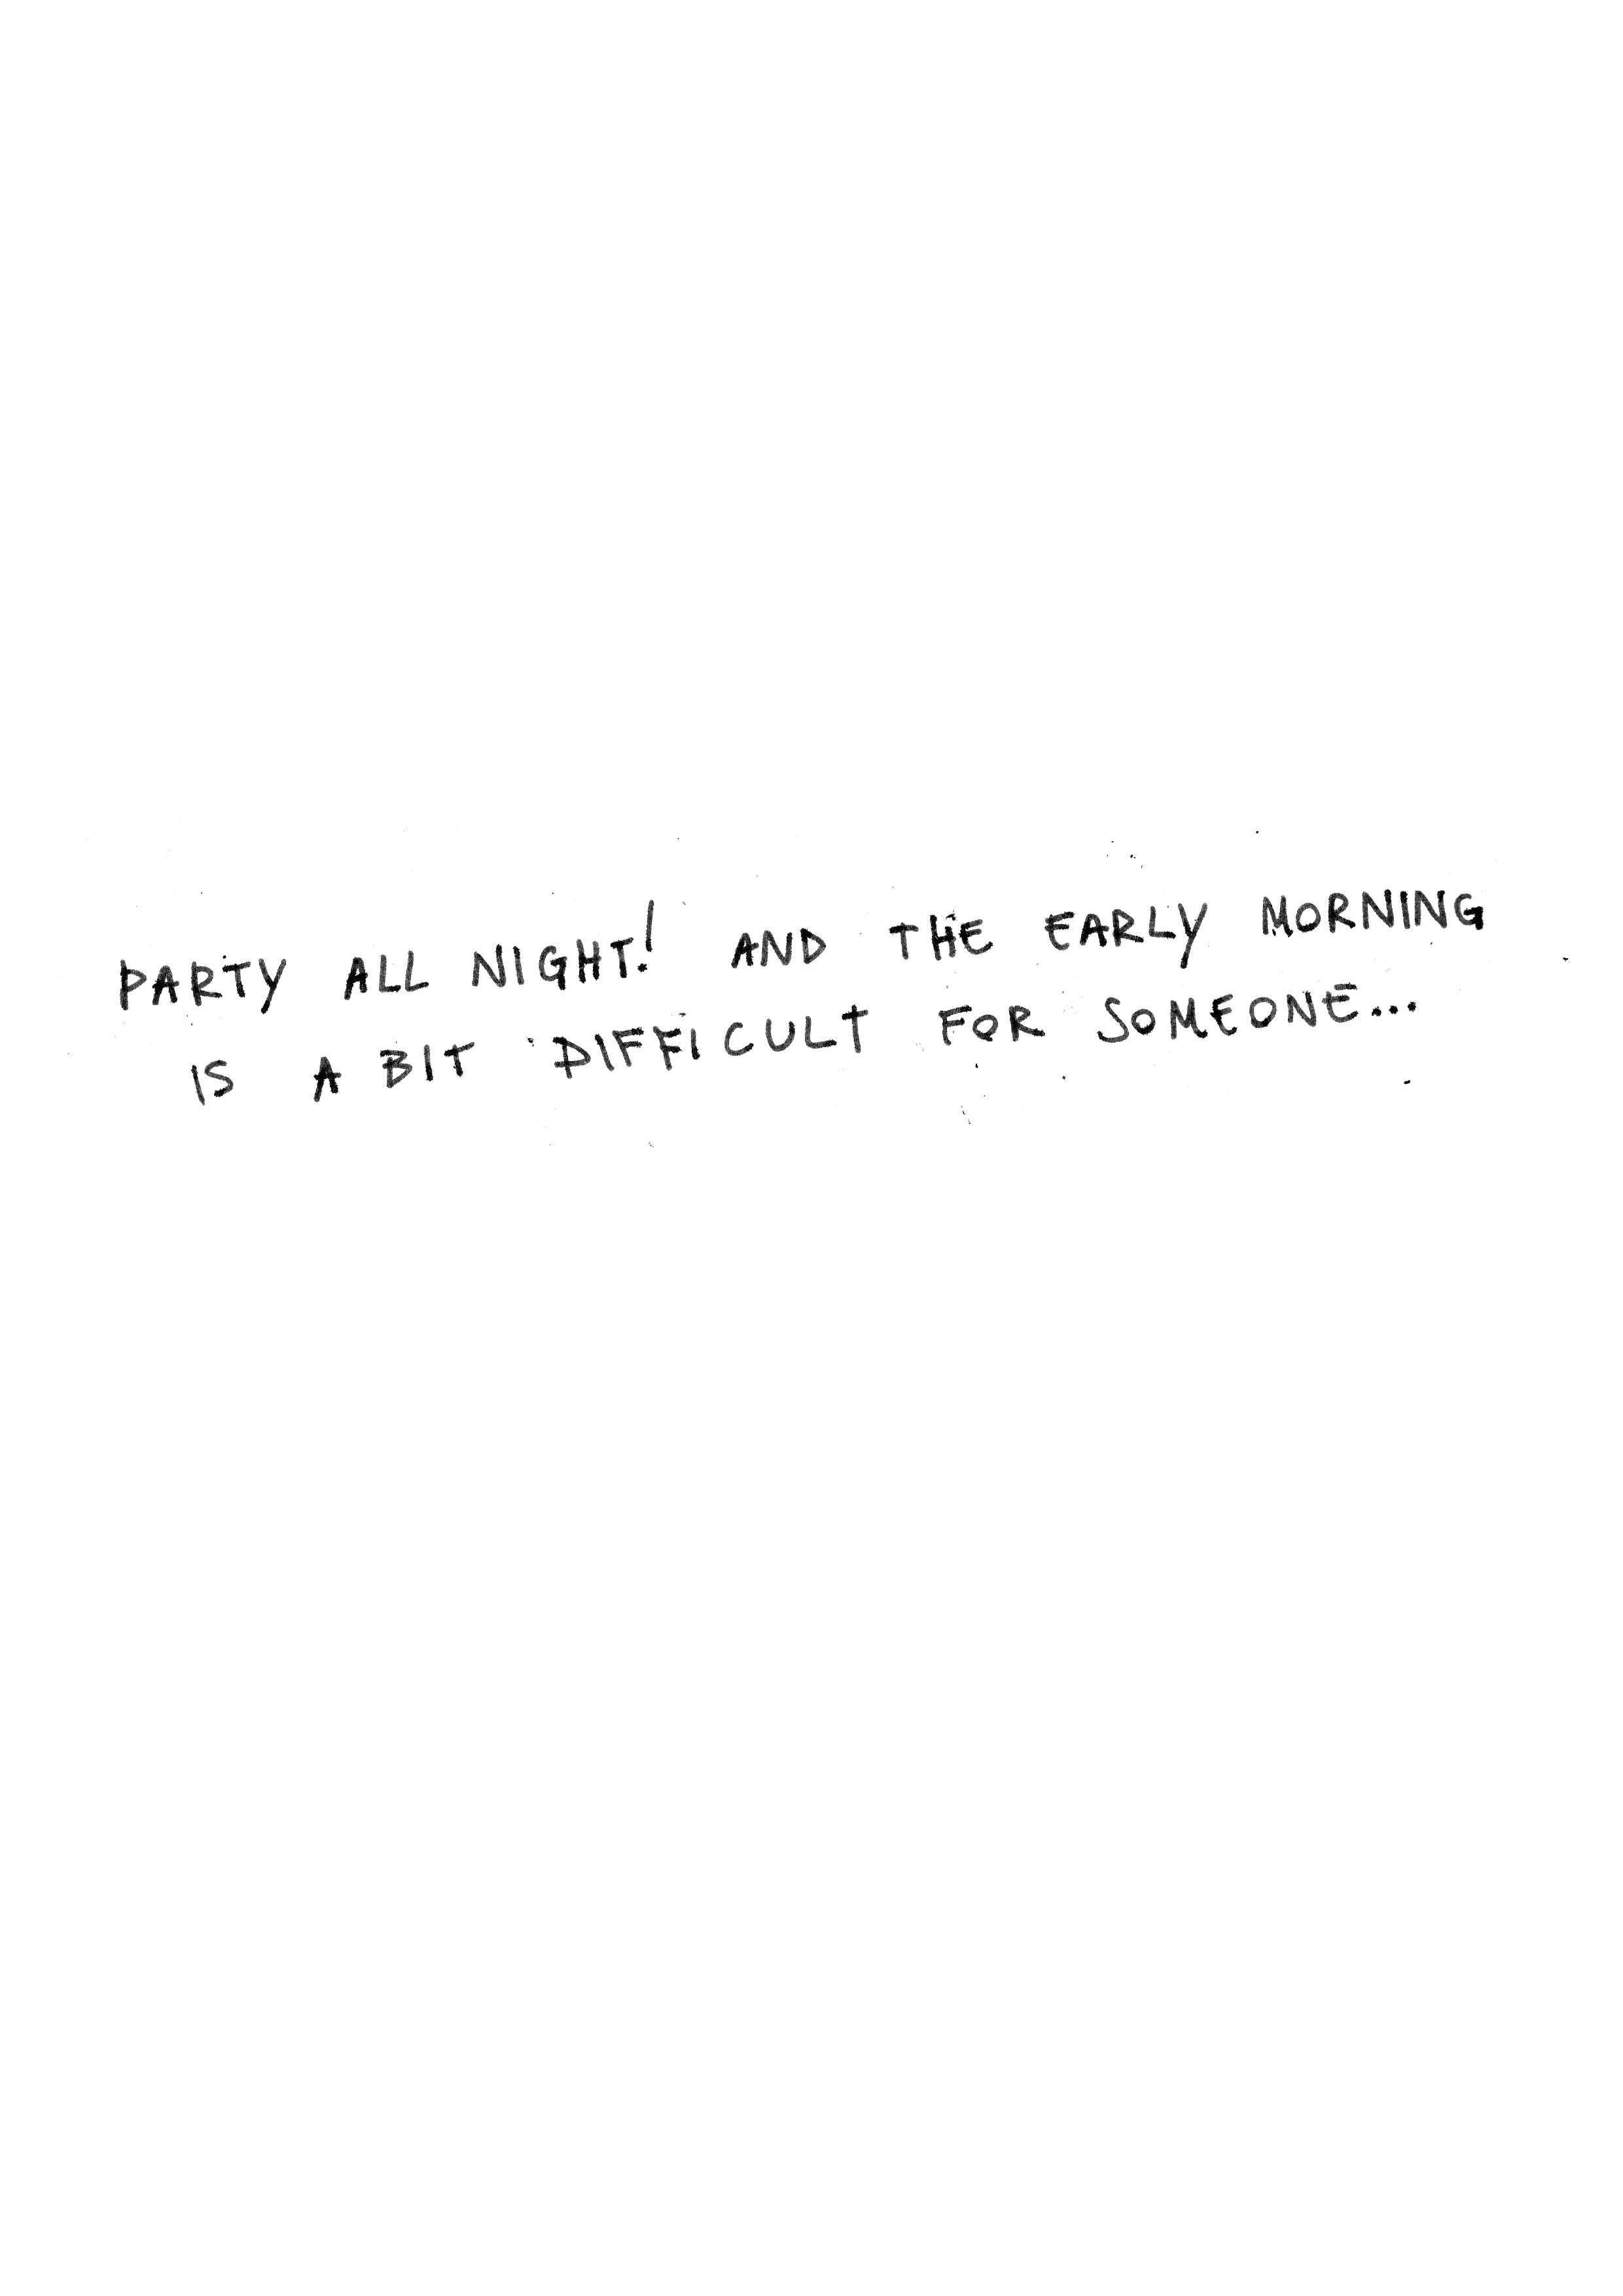 PARTY ALL NIGHT! AND THE EARLY MORNING
IS A BIT DIFFICULT FOR SOMEONE...